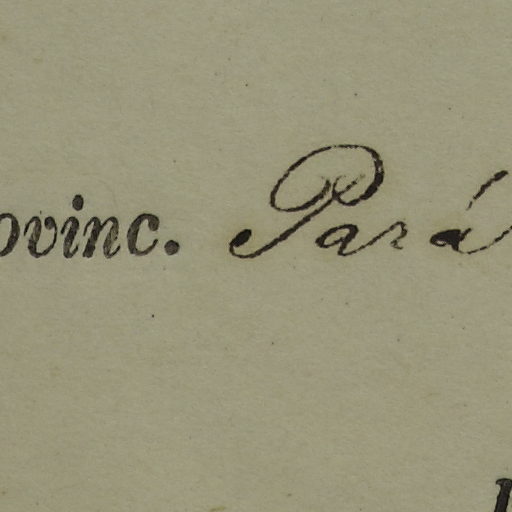 ovinc. Pará